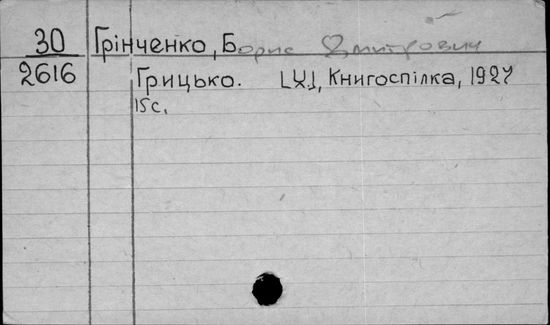 30 Грінченко, Борис Дмитрович
2616 Грицько. [Х.], Книгоспілка, 1927
15 с.